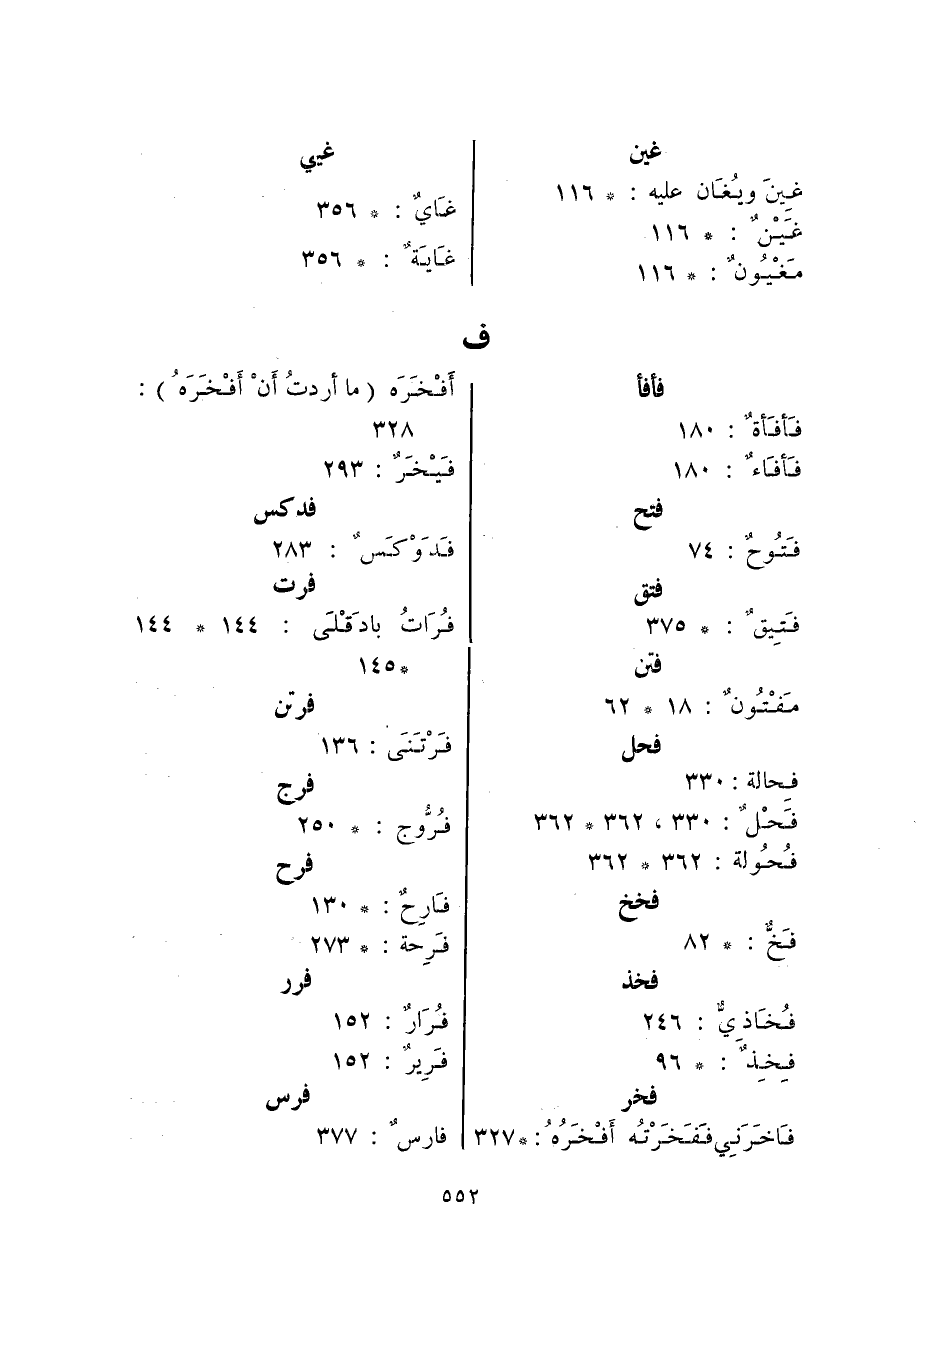 غين
غِينَ ويُغَان عليه : * ١١٦
غَيْنٌ : * ١١٦
مَغْيُونٌ : * ١١٦
غيي
غَايٌ : * ٣٥٦
غَايَةٌ : * ٣٥٦
ف
فأفأ
فَأفَأةٌ : ١٨٠
فَأفَاءٌ : ١٨٠
فتح
فَتُوحٌ : ٧٤
فتق
فَتِيقٌ : * ٣٧٥
فتن
مَفْتُونٌ : ١٨ * ٦٢
فحل
فِحالة : ٣٣٠
فَحْلٌ : ٣٣٠ ، ٣٦٢ * ٣٦٢
فُحُولة : ٣٦٢ * ٣٦٢
فخخ
فَخٌّ : * ٨٢
فخذ
فُخَاذِيٌّ : ٢٤٦
فِخِذٌ : * ٩٦
فخر
فَاخَرَنِي فَفَخَرْتُه أَفْخَرُهُ : *٣٢٧
أَفْخَرَه ( ما أردتُ أَنْ أَفْخَرَهُ ) :
٣٢٨
فَيْخَرٌ : ٢٩٣
فدكس
فَدَوْكَسٌ : ٢٨٣
فرت
فُرَاتُ بادَقْلَى : ١٤٤ * ١٤٤
*١٤٥
فرتن
فَرْتَنَى : ١٣٦
فرج
فُرُّوج : * ٢٥٠
فرح
فَارِحٌ : * ١٣٠
فَرِحة : * ٢٧٣
فرر
فُرَارٌ : ١٥٢
فَرِيرٌ : ١٥٢
فرس
فارسٌ : ٣٧٧
٥٥٢